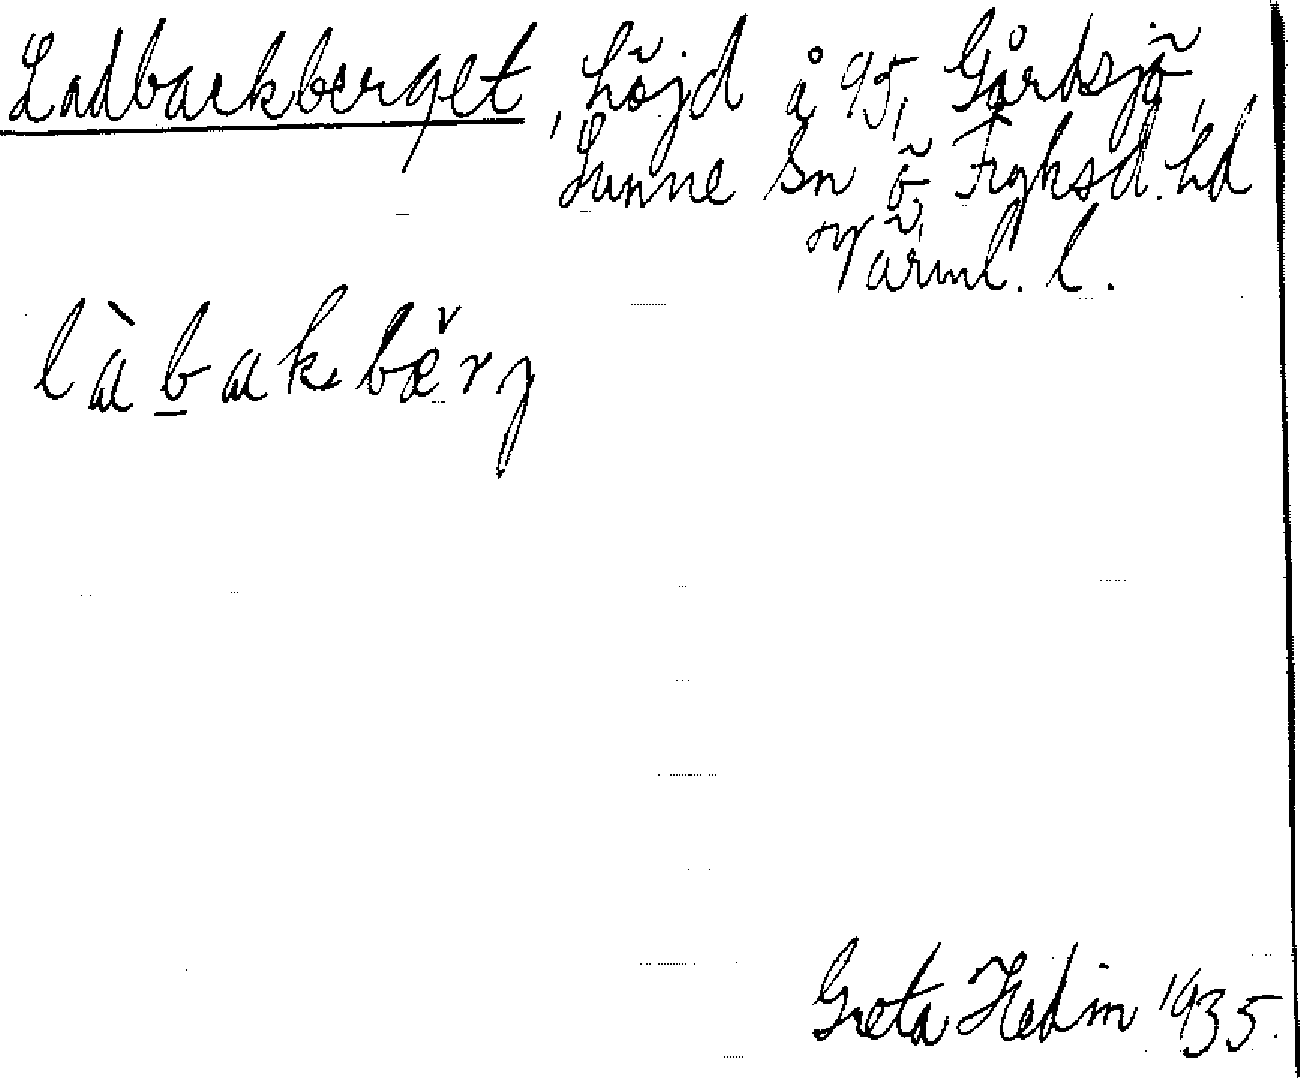 Ladbackberget, höjd å 95, Gårdsjö,
Sunne Sn Ö Fryksd. hd
Värml. l.
làbakbæ̌rj
Greta Hedin 1935.